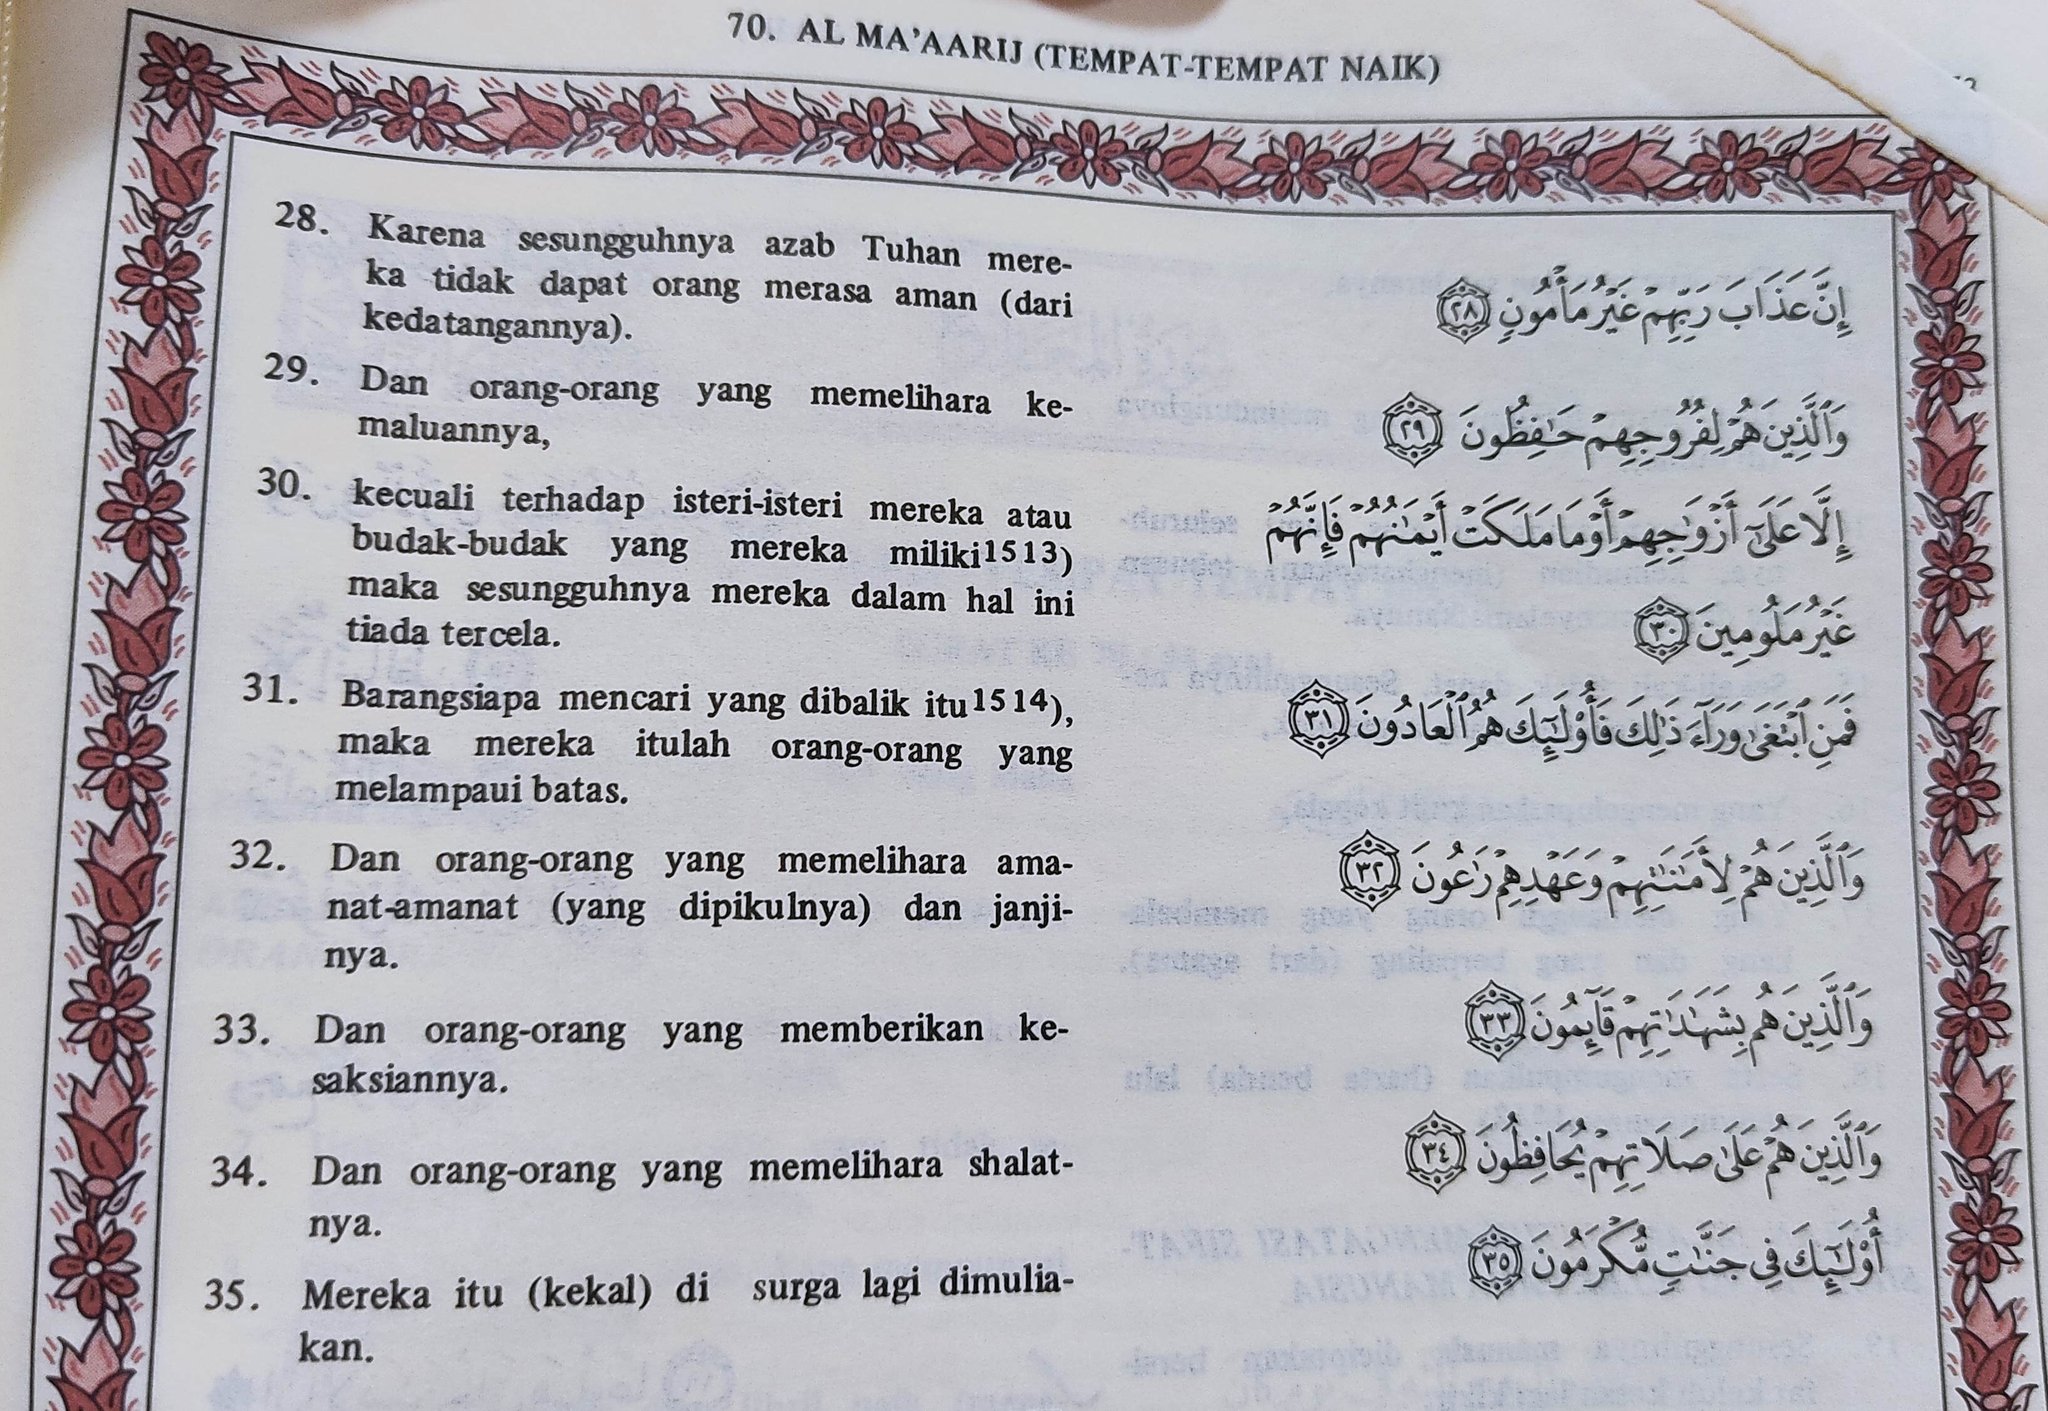 70. AL MA'AARIJ (TEMPAT-TEMPAT NAIK)
28. Karena sesungguhnya azab Tuhan mere-
ka tidak dapat orang merasa aman (dari
kedatangannya).
إِنَّ عَذَابَ رَبِّهِمْ غَيْرُ مَأْمُونٍ ٢٨
29. Dan orang-orang yang memelihara ke-
maluannya,
وَالَّذِينَ هُمْ لِفُرُوجِهِمْ حَافِظُونَ ٢٩
30. kecuali terhadap isteri-isteri mereka atau
budak-budak yang mereka miliki1513)
maka sesungguhnya mereka dalam hal ini
tiada tercela.
إِلَّا عَلَىٰ أَزْوَاجِهِمْ أَوْ مَا مَلَكَتْ أَيْمَانُهُمْ فَإِنَّهُمْ
غَيْرُ مَلُومِينَ ٣٠
31. Barangsiapa mencari yang dibalik itu1514),
maka mereka itulah orang-orang yang
melampaui batas.
فَمَنِ ابْتَغَىٰ وَرَاءَ ذَٰلِكَ فَأُولَٰئِكَ هُمُ الْعَادُونَ ٣١
32. Dan orang-orang yang memelihara ama-
nat-amanat (yang dipikulnya) dan janji-
nya.
وَالَّذِينَ هُمْ لِأَمَانَاتِهِمْ وَعَهْدِهِمْ رَاعُونَ ٣٢
33. Dan orang-orang yang memberikan ke-
saksiannya.
وَالَّذِينَ هُمْ بِشَهَادَاتِهِمْ قَائِمُونَ ٣٣
34. Dan orang-orang yang memelihara shalat-
nya.
وَالَّذِينَ هُمْ عَلَىٰ صَلَاتِهِمْ يُحَافِظُونَ ٣٤
35. Mereka itu (kekal) di surga lagi dimulia-
kan.
أُولَٰئِكَ فِي جَنَّاتٍ مُكْرَمُونَ ٣٥